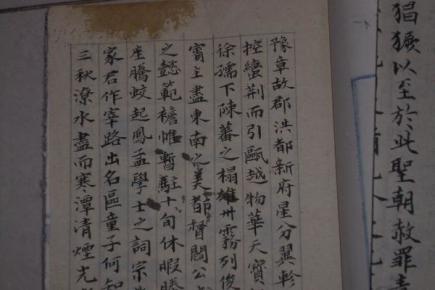 猖獗以至於此聖朝赦罪責
豫章故郡洪都新府星分翼軫
控蠻荆而引甌越物華天寶
徐孺下陳蕃之榻雄州霧列俊
賓主盡東南之美都督閻公
之懿範襜帷暫駐十旬休暇勝
座騰蛟起鳳孟學士之詞宗
家君作宰路出名區童子何知
三秋潦水盡而寒潭清煙光